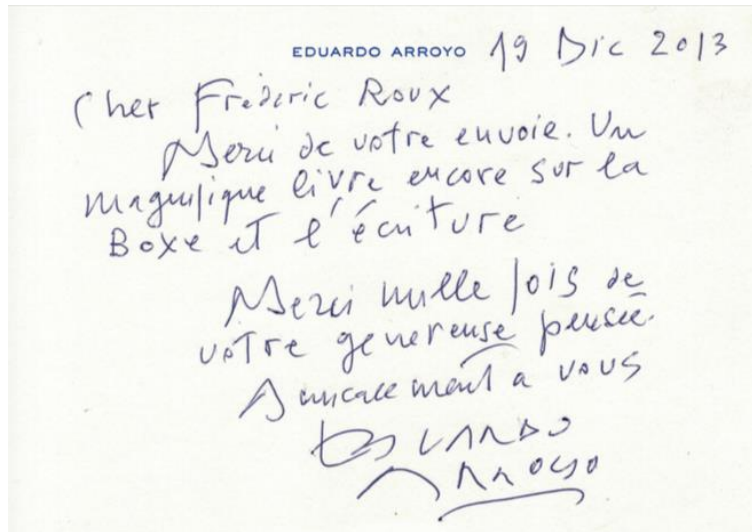 EDUARDO ARROYO 19 Dic 2013
Cher Frederic Roux
Merci de votre envoie. Un
magnifique livre encore sur la
Boxe et l'écriture
Merci mille fois de
votre genereuse pensée.
Amicalement a vous
Eduardo
Arroyo